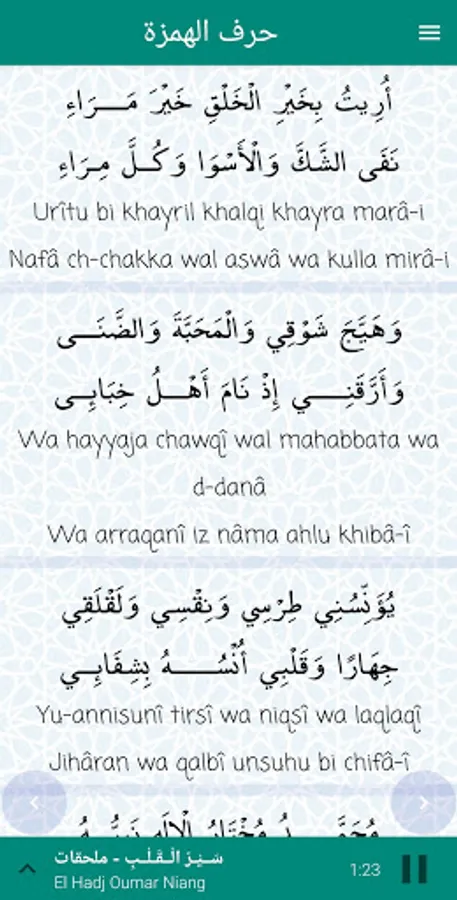 حرف الهمزة
أُرِيتُ بِخَيْرِ الْخَلْقِ خَيْرَ مَـــرَاءِ
نَفَى الشَّكَّ وَالْأَسْوَا وَكُـلَّ مِـرَاءِ
Urîtu bi khayril khalqi khayra marâ-i
Nafâ ch-chakka wal aswâ wa kulla mirâ-i
وَهَيَّجَ شَوْقِي وَالْمَحَبَّةَ وَالضَّنَـــى
وَأَرَّقَنِــــي إِذْ نَامَ أَهْـــلُ خِبَابِـى
Wa hayyaja chawqî wal mahabbata wa
d-danâ
Wa arraqanî iz nâma ahlu khibâ-î
يُؤَنِّسُنِي طِرْسِي وَنِقْسِي وَلَقْلَقِي
جِهَارًا وَقَلْبِي أُنْسُــــهُ بِشِفَابِــي
Yu-annisunî tirsî wa niqsî wa laqlaqî
Jihâran wa qalbî unsuhu bi chifâ-î
سَـيْـرَ الْـقَـلْـبِ - ملحقات
1:23
El Hadj Oumar Niang